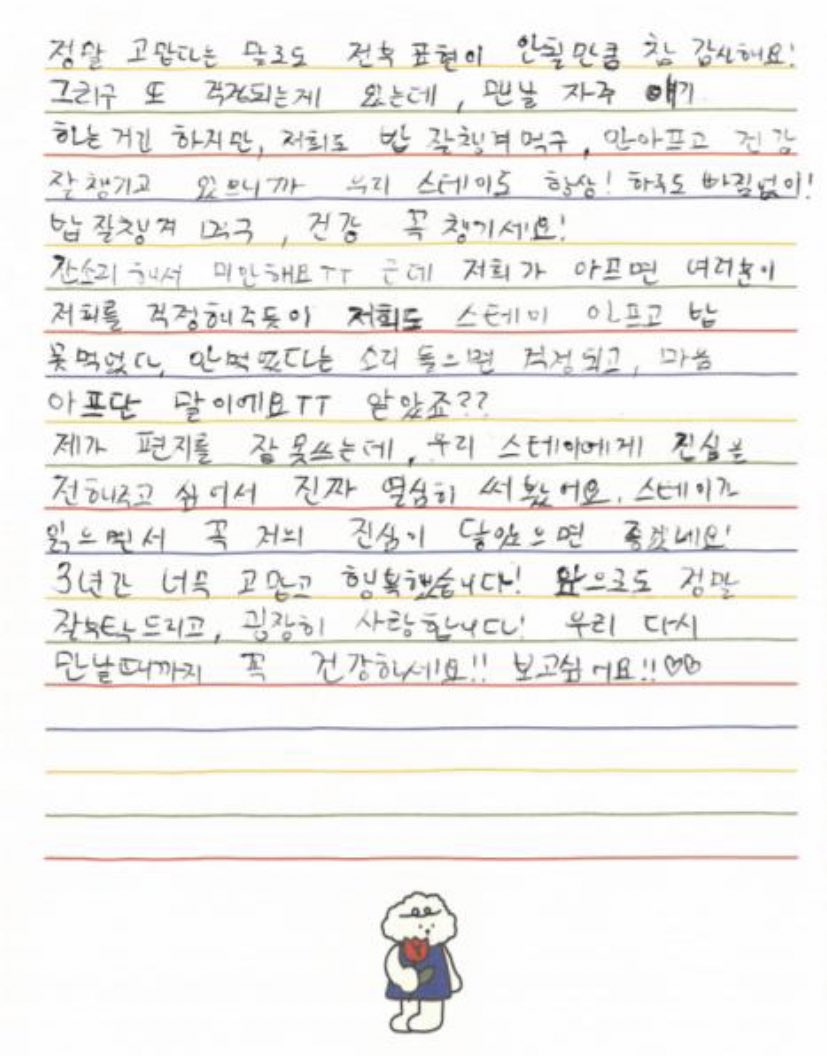 정말 고맙다는 말로도 전혀 표현이 안될만큼 참 감사해요!
그리구 또 걱정되는게 있는데, 맨날 자주 얘기
하는거긴 하지만, 저희도 밥 잘챙겨먹구, 안아프고 건강
잘챙기고 있으니까 우리 스테이도 항상! 하루도 빠짐없이!
밥 잘챙겨 먹구, 건강 꼭 챙기세요!
잔소리해서 미안해요TT 근데 저희가 아프면 여러분이
저희를 걱정해주듯이 저희도 스테이 아프고 밥
못먹었다, 안먹었다는 소리 들으면 걱정되고, 마음
아프단 말이에요TT 알았죠??
제가 편지를 잘못쓰는데, 우리 스테이에게 진심을
전해주고 싶어서 진짜 열심히 써봤어요. 스테이가
읽으면서 꼭 저의 진심이 닿았으면 좋겠네요!
3년간 너무 고맙고 행복했습니다! 앞으로도 정말
잘부탁드리고, 굉장히 사랑합니다! 우리 다시
만날때까지 꼭 건강하세요!! 보고싶어요!!♡♡